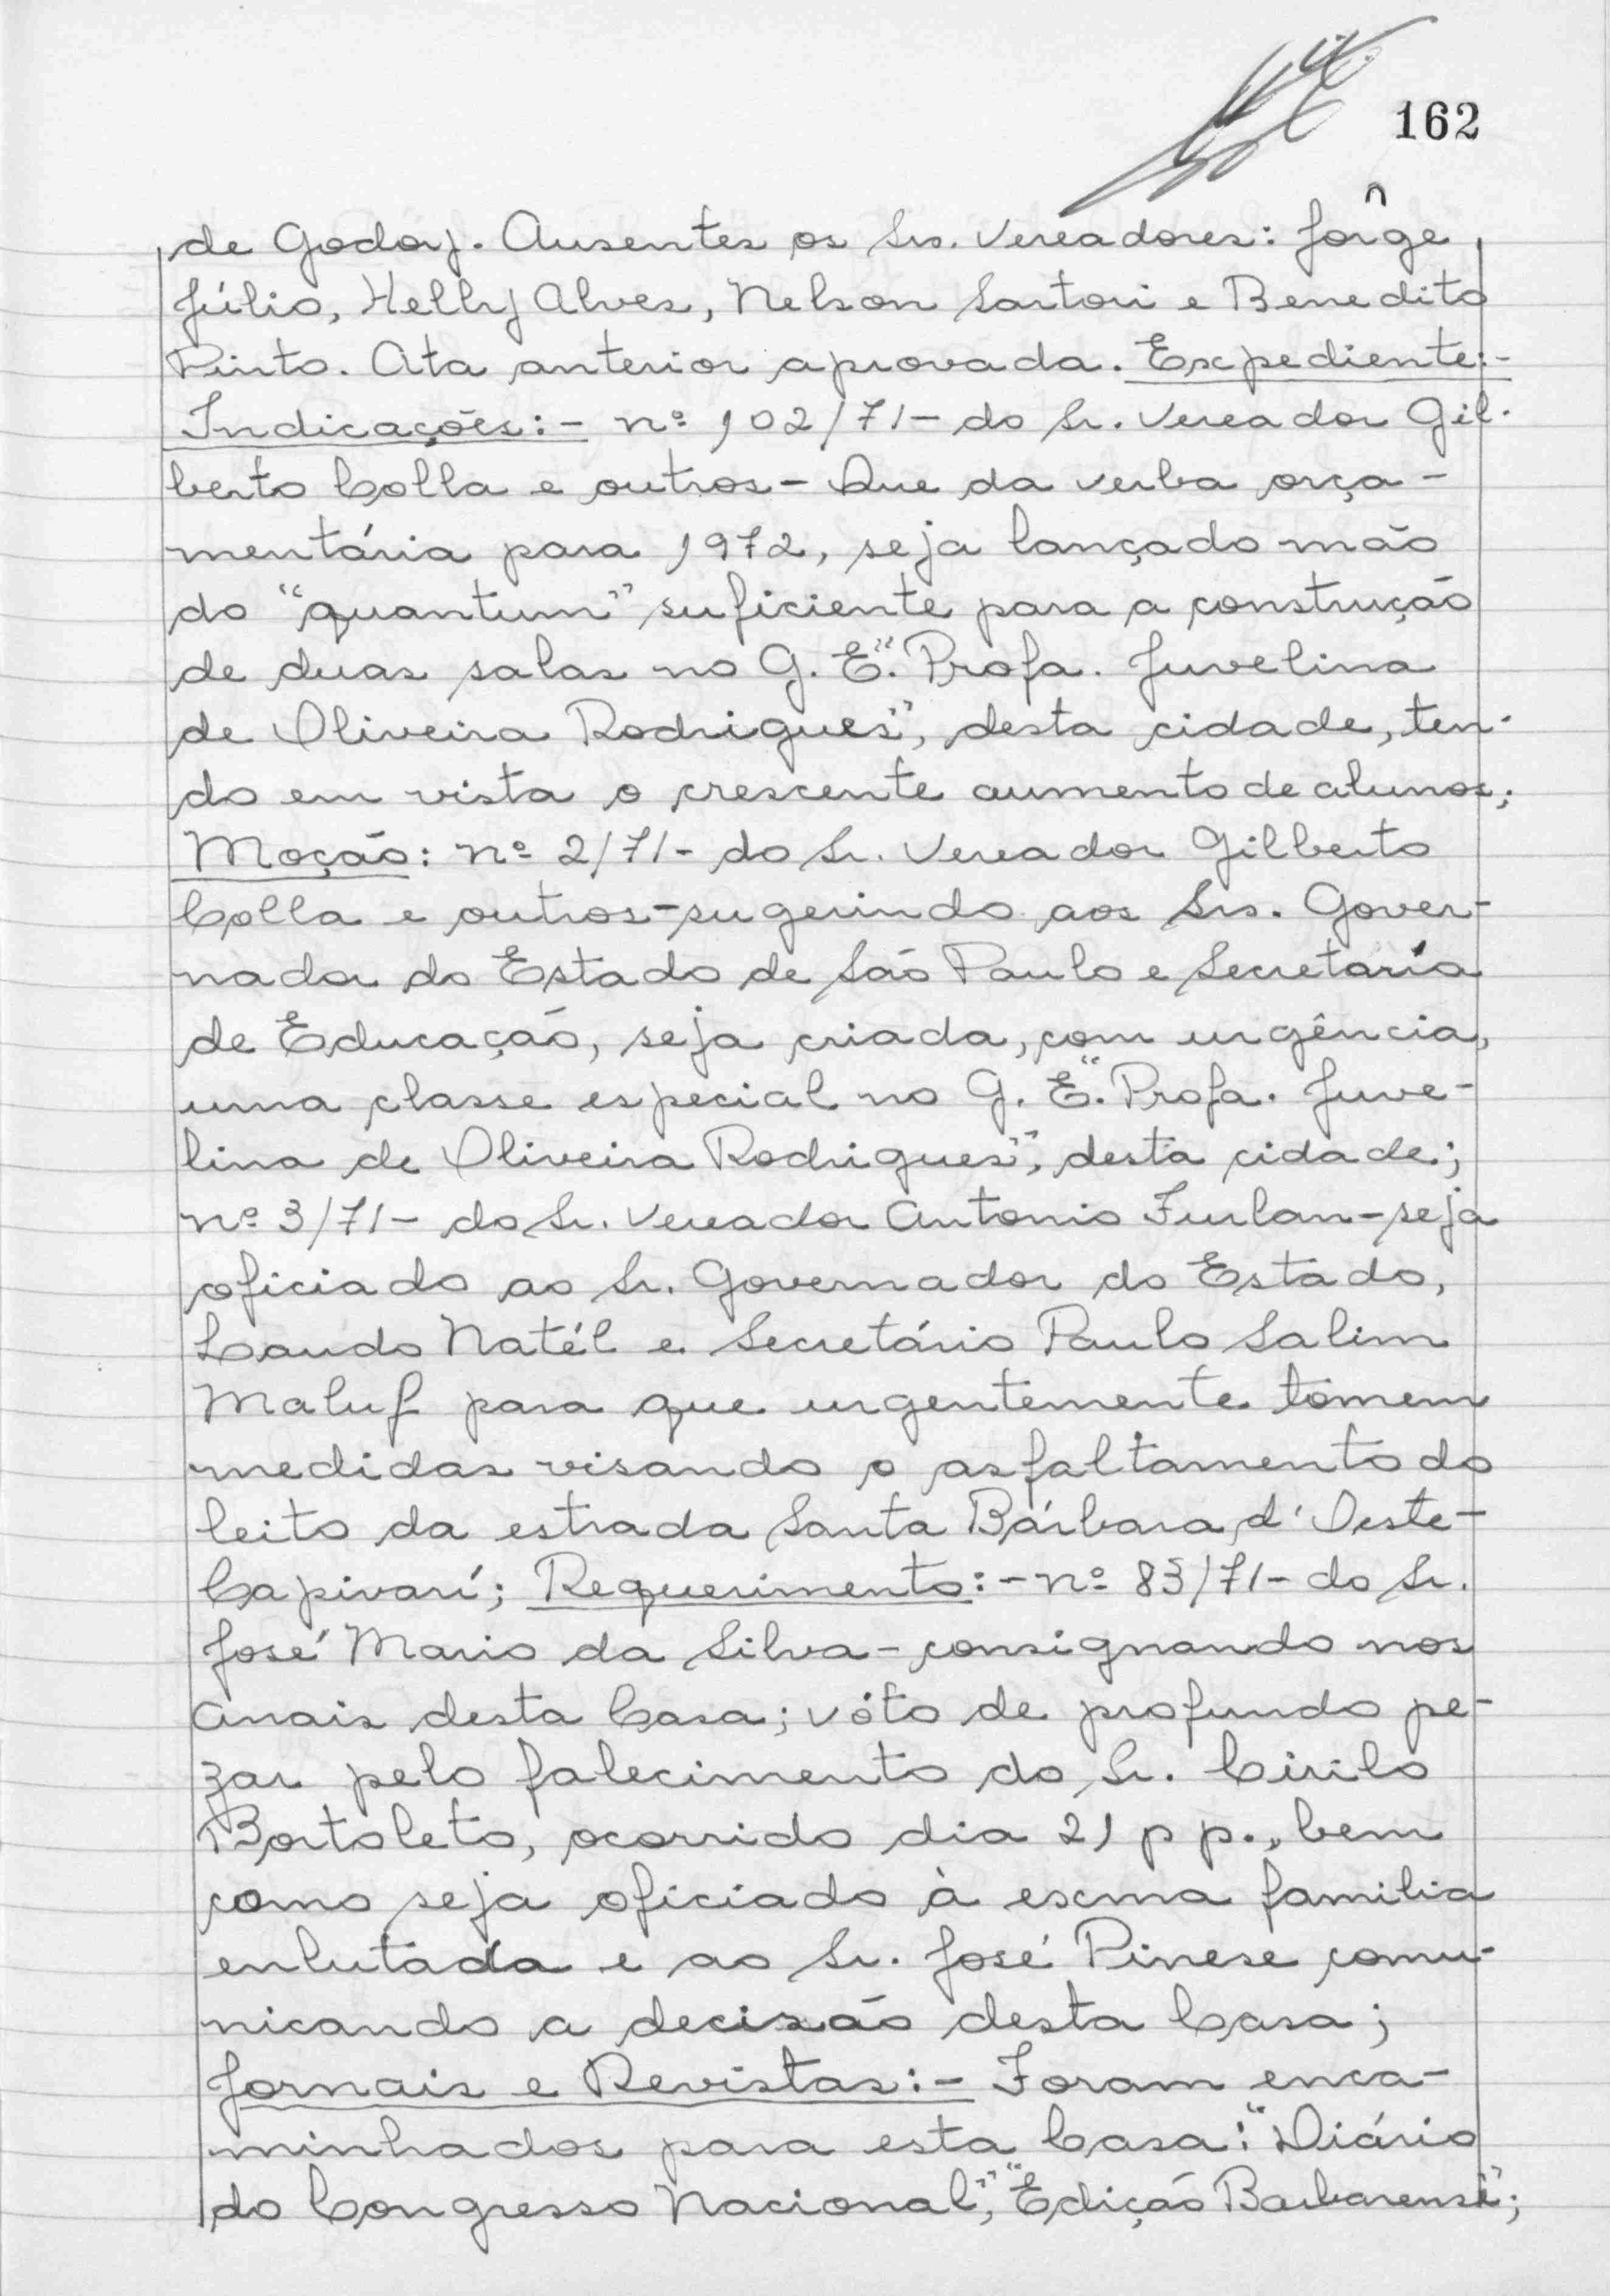 162
de Godoy. Ausentes os Srs. Vereadores: Jorge
Júlio, Helly Alves, Nelson Sartori e Benedito
Pinto. Ata anterior aprovada. Expediente:-
Indicações:- nº 102/71- do Sr. Vereador Gil-
berto Colla e outros- Que da verba orça-
mentária para 1972, seja lançado mão
do "quantum" suficiente para a construção
de duas salas no G. E. "Profa. Juvelina
de Oliveira Rodrigues", desta cidade, ten-
do em vista o crescente aumento de alunos;
Moção: nº 2/71- do Sr. Vereador Gilberto
Colla e outros-sugerindo aos Srs. Gover-
nador do Estado de São Paulo e Secretaría
de Educação, seja criada, com urgência,
uma classe especial no G. E. "Profa. Juve-
lina de Oliveira Rodrigues", desta cidade;
nº 3/71- do Sr. Vereador Antonio Furlan-seja
oficiado ao Sr. Governador do Estado,
Laudo Natél e Secretário Paulo Salim
Maluf para que urgentemente tomem
medidas visando o asfaltamento do
leito da estrada Santa Bárbara d'Oeste-
Capivarí; Requerimento:- nº 83/71- do Sr.
José Mario da Silva-consignando nos
Anais desta Casa; vóto de profundo pe-
zar pelo falecimento do Sr. Cirilo
Bortoleto, ocorrido dia 21 p p., bem
como seja oficiado à exma familia
enlutada e ao Sr. José Pinese comu-
nicando a decisão desta Casa;
Jornais e Revistas:- Foram enca-
minhados para esta Casa: "Diário
do Congresso Nacional", "Edição Barbarense";